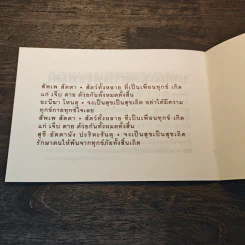 สัพเพ สัตตา • สัตว์ทั้งหลาย ที่เป็นเพื่อนทุกข์ เกิด
แก่ เจ็บ ตาย ด้วยกันทั้งหมดทั้งสิ้น
อะนีฆา โหนตุ • จงเป็นสุขเป็นสุขเถิด อย่าได้มีความ
ทุกข์กายทุกข์ใจเลย
สัพเพ สัตตา • สัตว์ทั้งหลาย ที่เป็นเพื่อนทุกข์ เกิด
แก่ เจ็บ ตาย ด้วยกันทั้งหมดทั้งสิ้น
สุขี อัตตานัง ปะริหะรันตุ • จงเป็นสุขเป็นสุขเถิด
รักษาตนให้พ้นจากทุกข์ภัยทั้งสิ้นเถิด